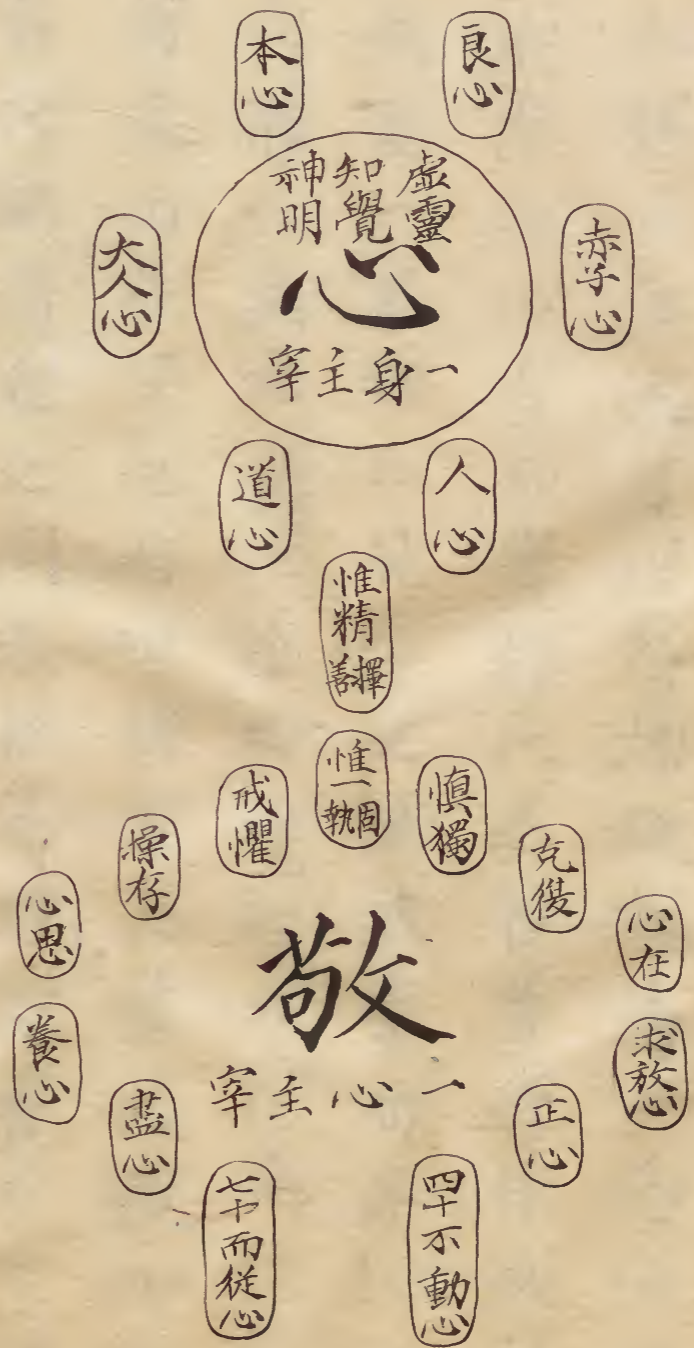 良心
本心
虛靈
知覺
神明
心
一身主宰
赤子心
大人心
人心
道心
惟精
擇善
惟一
固執
慎獨
戒懼
克復
操存
心在
心思
求放心
養心
敬
一心主宰
正心
盡心
四十不動心
七十而從心